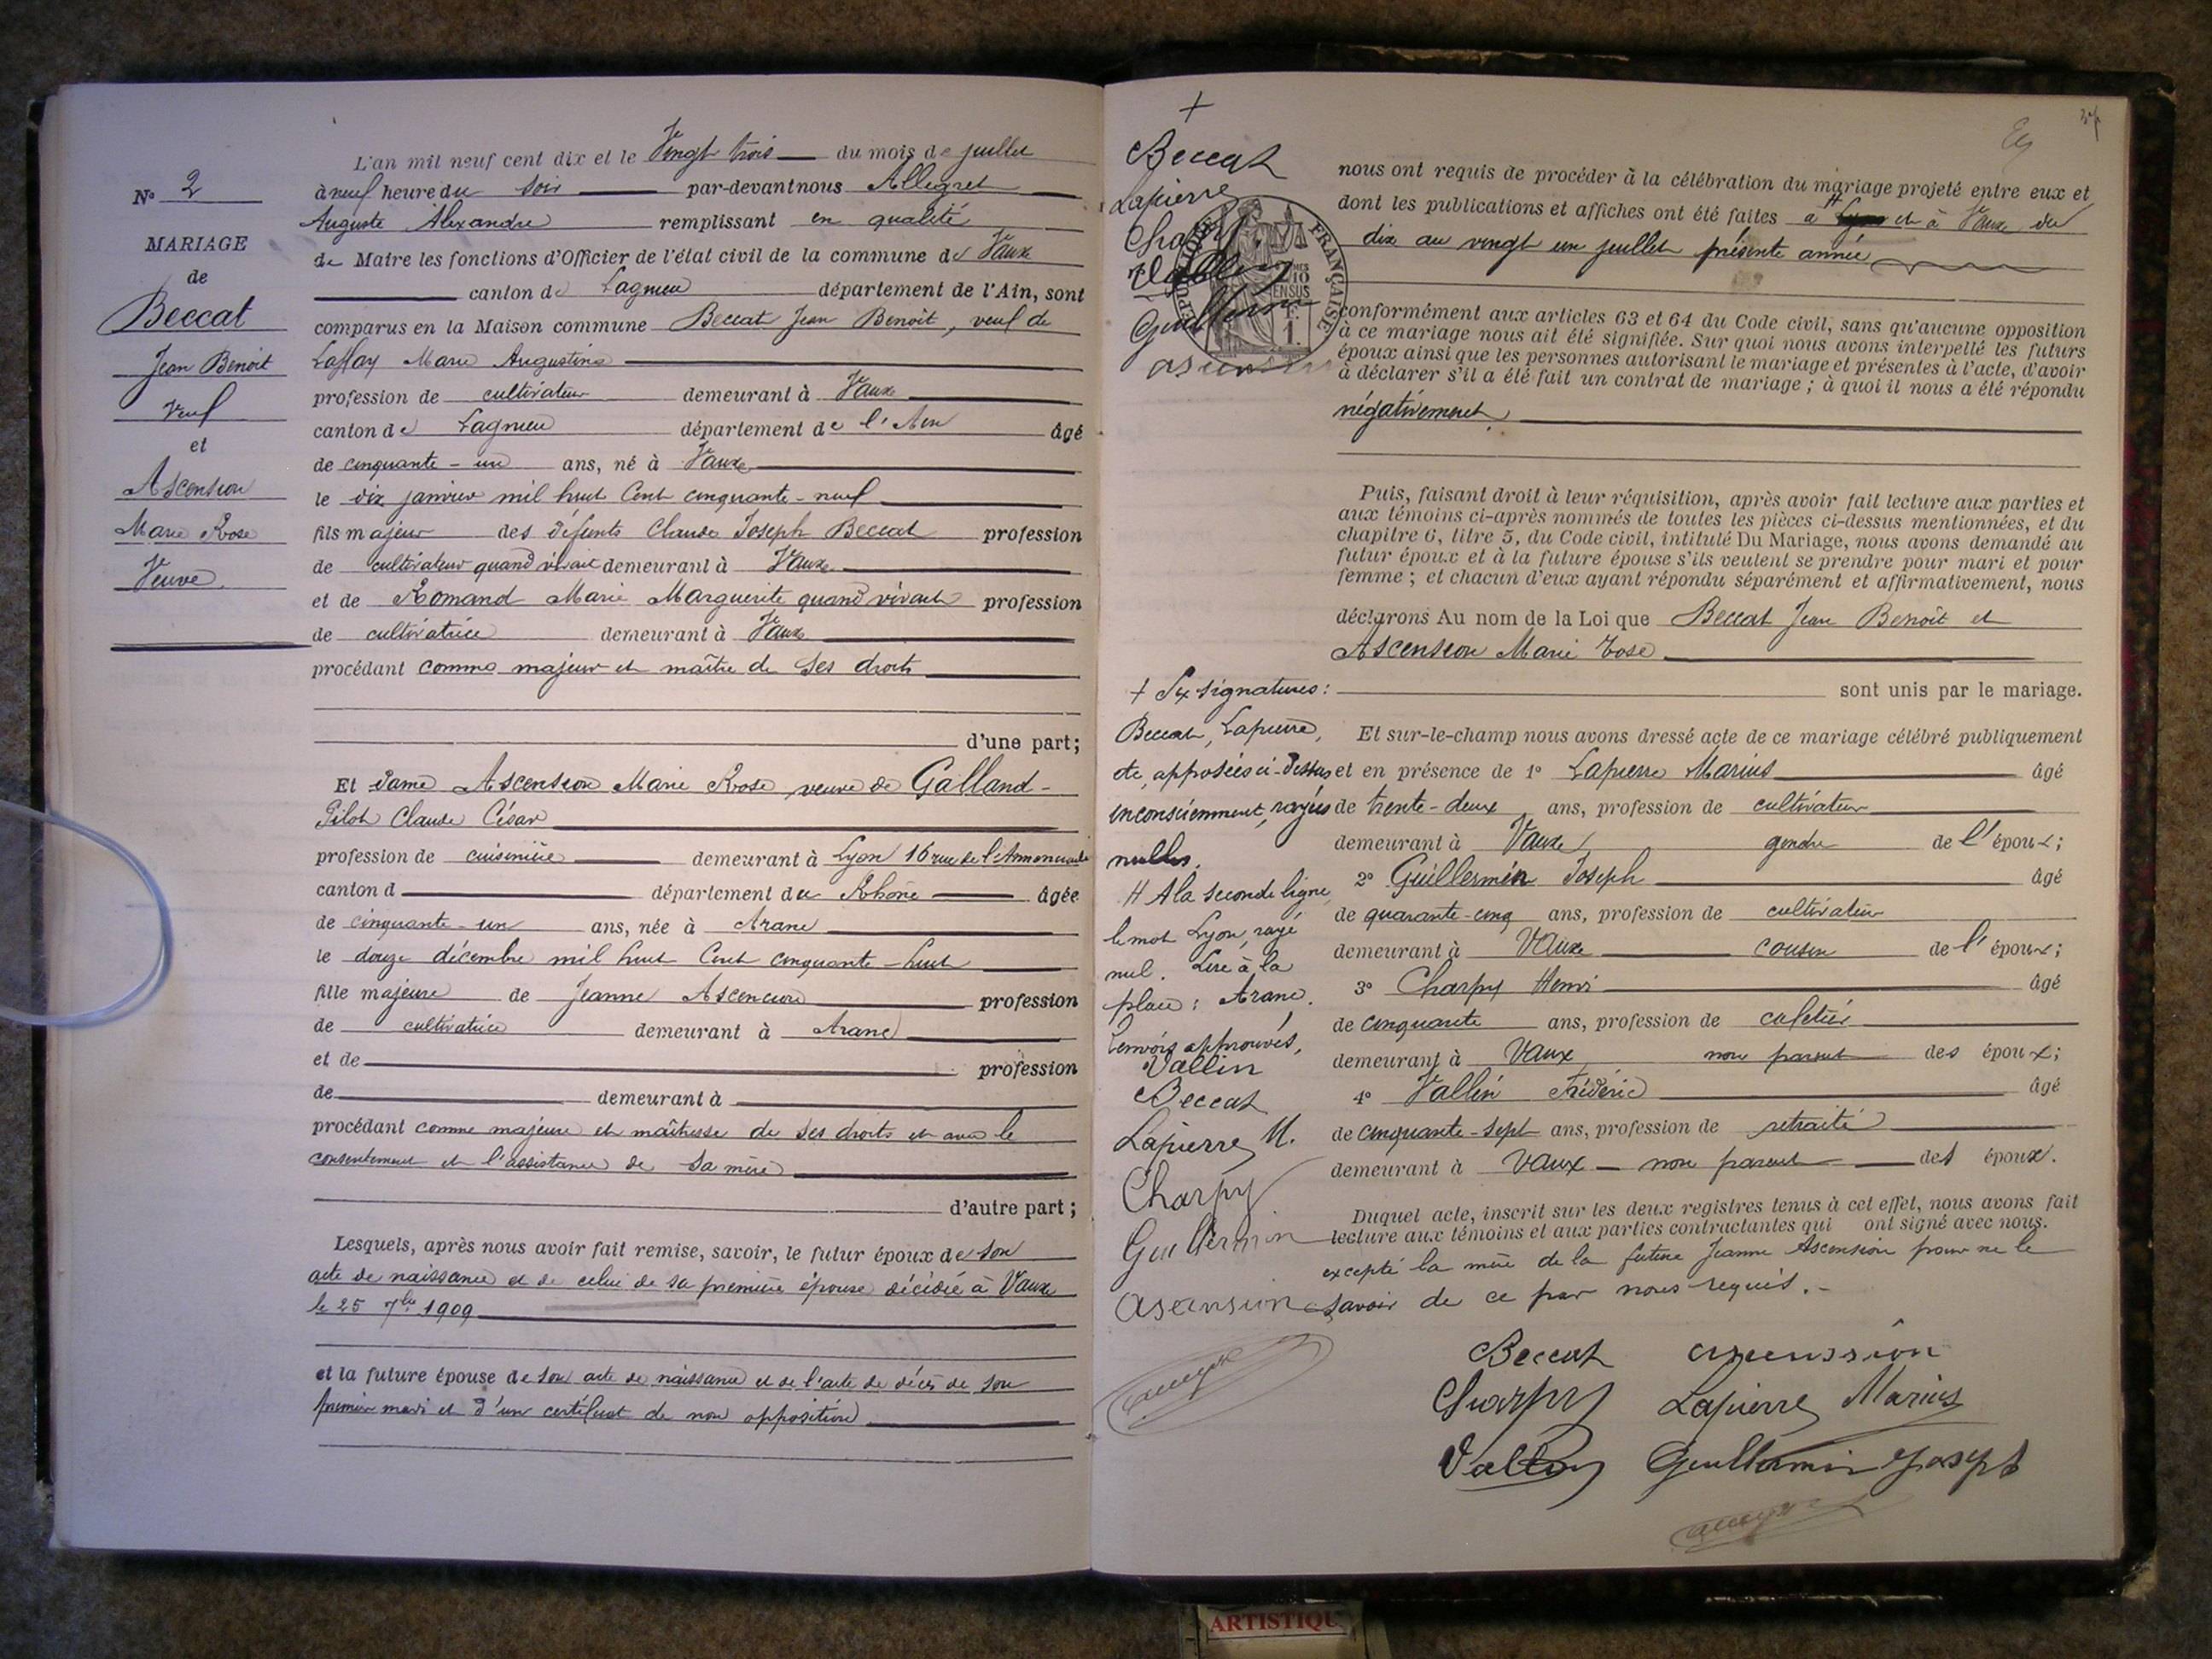 L'an mil neuf cent dix et le Vingt trois du mois de juillet
N° 2
à neuf heure du soir par-devant nous Allegret
Auguste Alexandre remplissant en qualité
MARIAGE
de Maire les fonctions d'Officier de l'état civil de la commune de Vaux
de
canton de Lagnieu département de l'Ain, sont
Beccat
comparus en la Maison commune Beccat Jean Benoit, veuf de
Jean Benoit
Marie Augustine
Veuf
profession de cultivateur demeurant à Vaux
et
canton de Lagnieu département de l'Ain âgé
de cinquante-un ans, né à Vaux
Ascension
le dix janvier mil huit Cent cinquante-neuf
Marie Rose
fils majeur des défunts Claude Joseph Beccat profession
Veuve
de cultivateur quand vivait demeurant à Vaux
et de Romand Marie Marguerite quand vivait profession
de cultivatrice demeurant à Vaux
procédant comme majeur et maître de ses droits
d'une part;
Et dame Ascension Marie Rose veuve de Galland-
Pilot Claude César
profession de cuisinière demeurant à Lyon 16 rue de l'Annonciade
canton d département du Rhône âgée
de cinquante-un ans, née à Aranc
le douze décembre mil huit Cent cinquante-huit
fille majeure de Jeanne Ascencion profession
de cultivatrice demeurant à Aranc
et de profession
de demeurant à
procédant comme majeure et maîtresse de ses droits et avec le
consentement et l'assistance de sa mère
d'autre part;
Lesquels, après nous avoir fait remise, savoir, le futur époux de son
acte de naissance et de celui de sa première épouse décédée à Vaux
le 25 7bre 1909
et la future épouse de son acte de naissance et de l'acte de décès de son
premier mari et d'un certificat de non opposition
+
Beccat
Lapierre
Charpy
Vallin
Guillermin
asension
RÉPUBLIQUE FRANÇAISE
nous ont requis de procéder à la célébration du mariage projeté entre eux et
dont les publications et affiches ont été faites à H Lyon et à Vaux du
dix au vingt un juillet présente année
conformément aux articles 63 et 64 du Code civil, sans qu'aucune opposition
à ce mariage nous ait été signifiée. Sur quoi nous avons interpellé les futurs
époux ainsi que les personnes autorisant le mariage et présentes à l'acte, d'avoir
à déclarer s'il a été fait un contrat de mariage; à quoi il nous a été répondu
négativement.
Puis, faisant droit à leur réquisition, après avoir fait lecture aux parties et
aux témoins ci-après nommés de toutes les pièces ci-dessus mentionnées, et du
chapitre 6, titre 5, du Code civil, intitulé Du Mariage, nous avons demandé au
futur époux et à la future épouse s'ils veulent se prendre pour mari et pour
femme; et chacun d'eux ayant répondu séparément et affirmativement, nous
déclarons Au nom de la Loi que Beccat Jean Benoît et
Ascension Marie Rose
sont unis par le mariage.
Et sur-le-champ nous avons dressé acte de ce mariage célébré publiquement
et en présence de 1° Lapierre Marius âgé
de trente-deux ans, profession de cultivateur
demeurant à Vaux gendre de l'époux;
2° Guillermin Joseph âgé
de quarante-cinq ans, profession de cultivateur
demeurant à Vaux cousin de l'époux;
3° Charpy Henri âgé
de cinquante ans, profession de cafetier
demeurant à Vaux non parent des époux;
4° Vallin Frédéric âgé
de cinquante-sept ans, profession de retraité
demeurant à Vaux non parent des époux.
Duquel acte, inscrit sur les deux registres tenus à cet effet, nous avons fait
lecture aux témoins et aux parties contractantes qui ont signé avec nous.
excepté la mère de la future Jeanne Ascension pour ne le
savoir de ce par nous requis.-
+ Six signatures:
Beccat, Lapierre,
etc, apposées ci-dessus
inconsciemment, rayées
nulles.
H A la seconde ligne
le mot Lyon, rayé
nul. Lire à la
place: Aranc.
Renvois approuvés,
Vallin
Beccat
Lapierre M.
Charpy
Guillermin
asension
Beccat asension
Charpy Lapierre Marius
Vallin Guillermin Joseph
ARTISTIQU